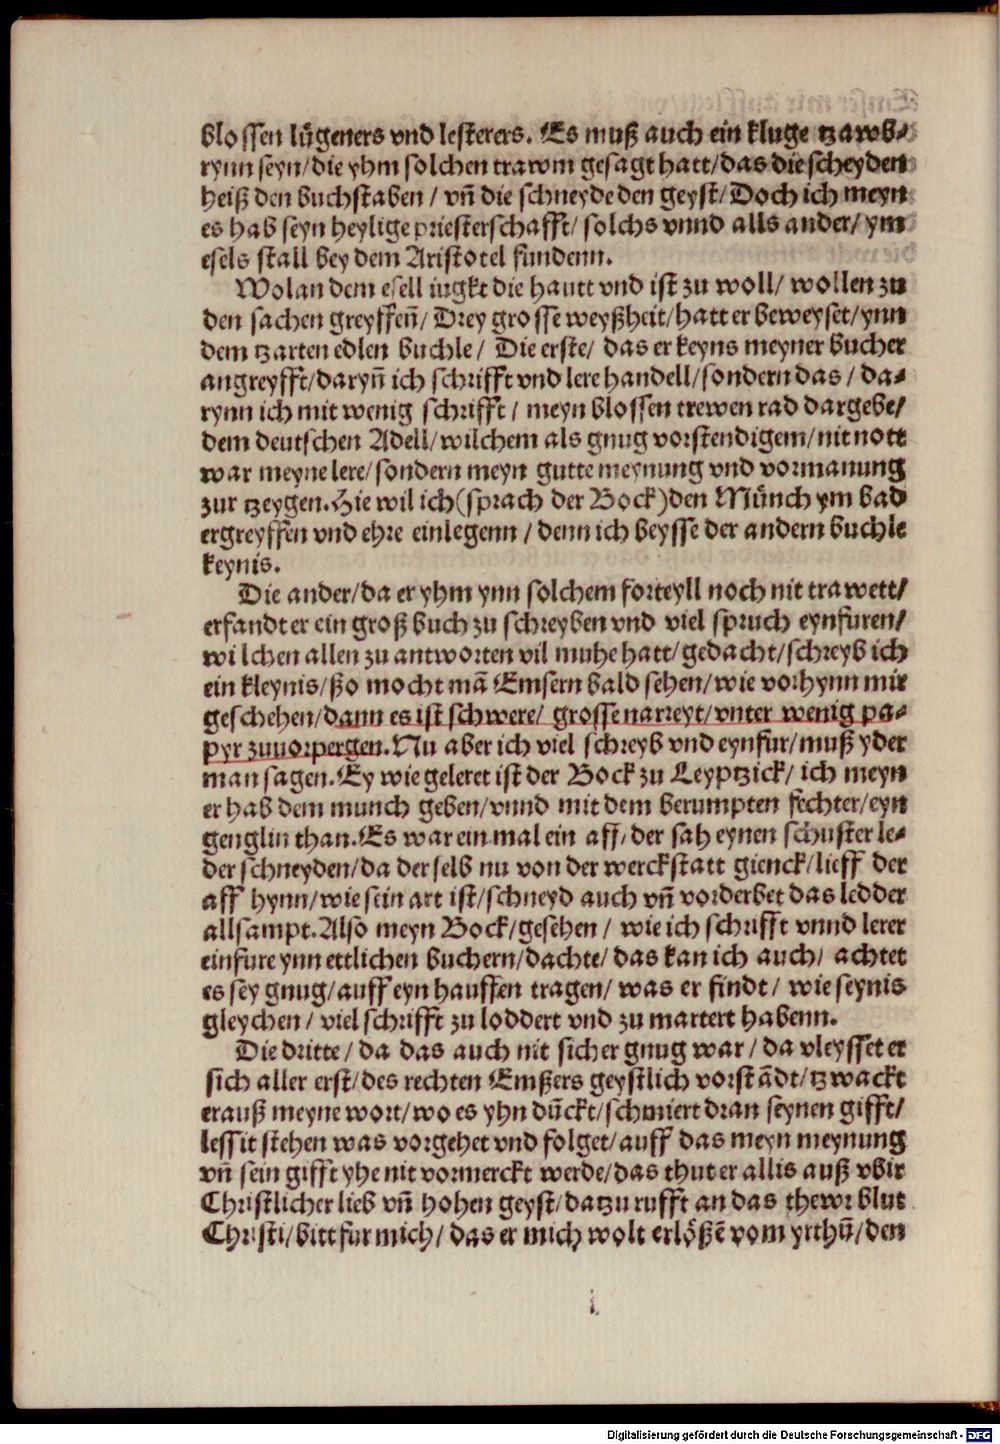 blossen lügeners vnd lesterers. Es muß auch ein kluge tzawb⸗
rynn seyn/die yhm solchen trawm gesagt hatt/das die scheyden
heiß den buchstaben / vñ die schneyde den geyst/ Doch ich meyn
es hab seyn heylige priesterschafft/ solchs vnnd alls ander/ ym
esels stall bey dem Aristotel fundenn.
Wolan dem esell iugkt die hautt vnd ist zu woll/ wollen zu
den sachen greyffeñ/ Drey grosse weyßheit/hatt er beweyset/ynn
dem tzarten edlen buchle/ Die erste/ das er keyns meyner bucher
angreyfft/daryñ ich schrifft vnd lere handell/sondern das / da⸗
rynn ich mit wenig schrifft / meyn blossen trewen rad dargebe/
dem deutschen Adell/wilchem als gnug vorstendigem/nit nott
war meyne lere/sondern meyn gutte meynung vnd vormanung
zur tzeygen. Hie wil ich (sprach der Bock) den Münch ym bad
ergreyffen vnd ehre einlegenn / denn ich beysse der andern buchle
keynis.
Die ander/da er yhm ynn solchem forteyll noch nit trawett/
erfandt er ein groß buch zu schreyben vnd viel spruch eynfuren/
wilchen allen zu antworten vil muhe hatt/gedacht/schreyb ich
ein kleynis/ßo mocht mã Emsern bald sehen/wie vorhynn mir
geschehen/dann es ist schwere/ grosse narreyt/vnter wenig pa⸗
pyr zuuorpergen. Nu aber ich viel schreyb vnd eynfur/muß yder
man sagen. Ey wie geleret ist der Bock zu Leyptzick/ ich meyn
er hab dem munch geben/vnnd mit dem berumpten fechter/eyn
genglin than. Es war ein mal ein aff/ der sah eynen schuster le⸗
der schneyden/da derselb nu von der werckstatt gienck/lieff der
aff hynn/wie sein art ist/schneyd auch vñ vorderbet das ledder
allsampt. Also meyn Bock/gesehen / wie ich schrifft vnnd lerer
einfure ynn ettlichen buchern/dachte/das kan ich auch/ achtet
es sey gnug/auff eyn hauffen tragen/ was er findt/ wie seynis
gleychen / viel schrifft zu loddert vnd zu martert habenn.
Die dritte/ da das auch nit sicher gnug war/ da vleysset er
sich aller erst/des rechten Emßers geystlich vorstãdt/tzwackt
erauß meyne wort/wo es yhn dũckt/schmiert dran seynen gifft/
lessit stehen was vorgehet vnd folget/auff das meyn meynung
vñ sein gifft yhe nit vormerckt werde/das thut er allis auß vbir
Christlicher lieb vñ hohen geyst/datzu rufft an das thewr blut
Christi/bitt fur mich/ das er mich wolt erlößẽ vom yrthũ/den
Digitalisierung gefördert durch die Deutsche Forschungsgemeinschaft - DFG